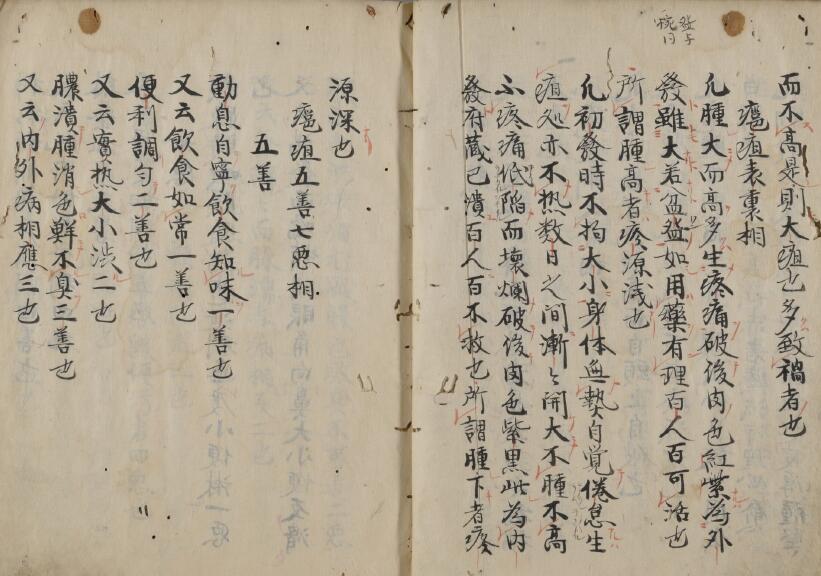 而不高是則大疽也多致禍者也
癰疽表裏相
凡腫大而高多生疼痛破後肉色紅紫為外
發雖大若盆盛如用藥有理百人百可活也
所謂腫高者疼源浅也
凡初發時不拘大小身体無熱自覚倦怠生
疽処亦不热数日之间漸々開大不腫不高
不疼痛低陥而壊爛破後肉色紫黒此為内
發府蔵已潰百人百不救也所謂腫下者疼
源深也
癰疽五善七悪相
五善
動息自寧飲食知味一善也
又云飲食如常一善也
便利調匀二善也
又云實热大小渋二也
膿潰腫消色鮮不臭三善也
又云内外病相應三也